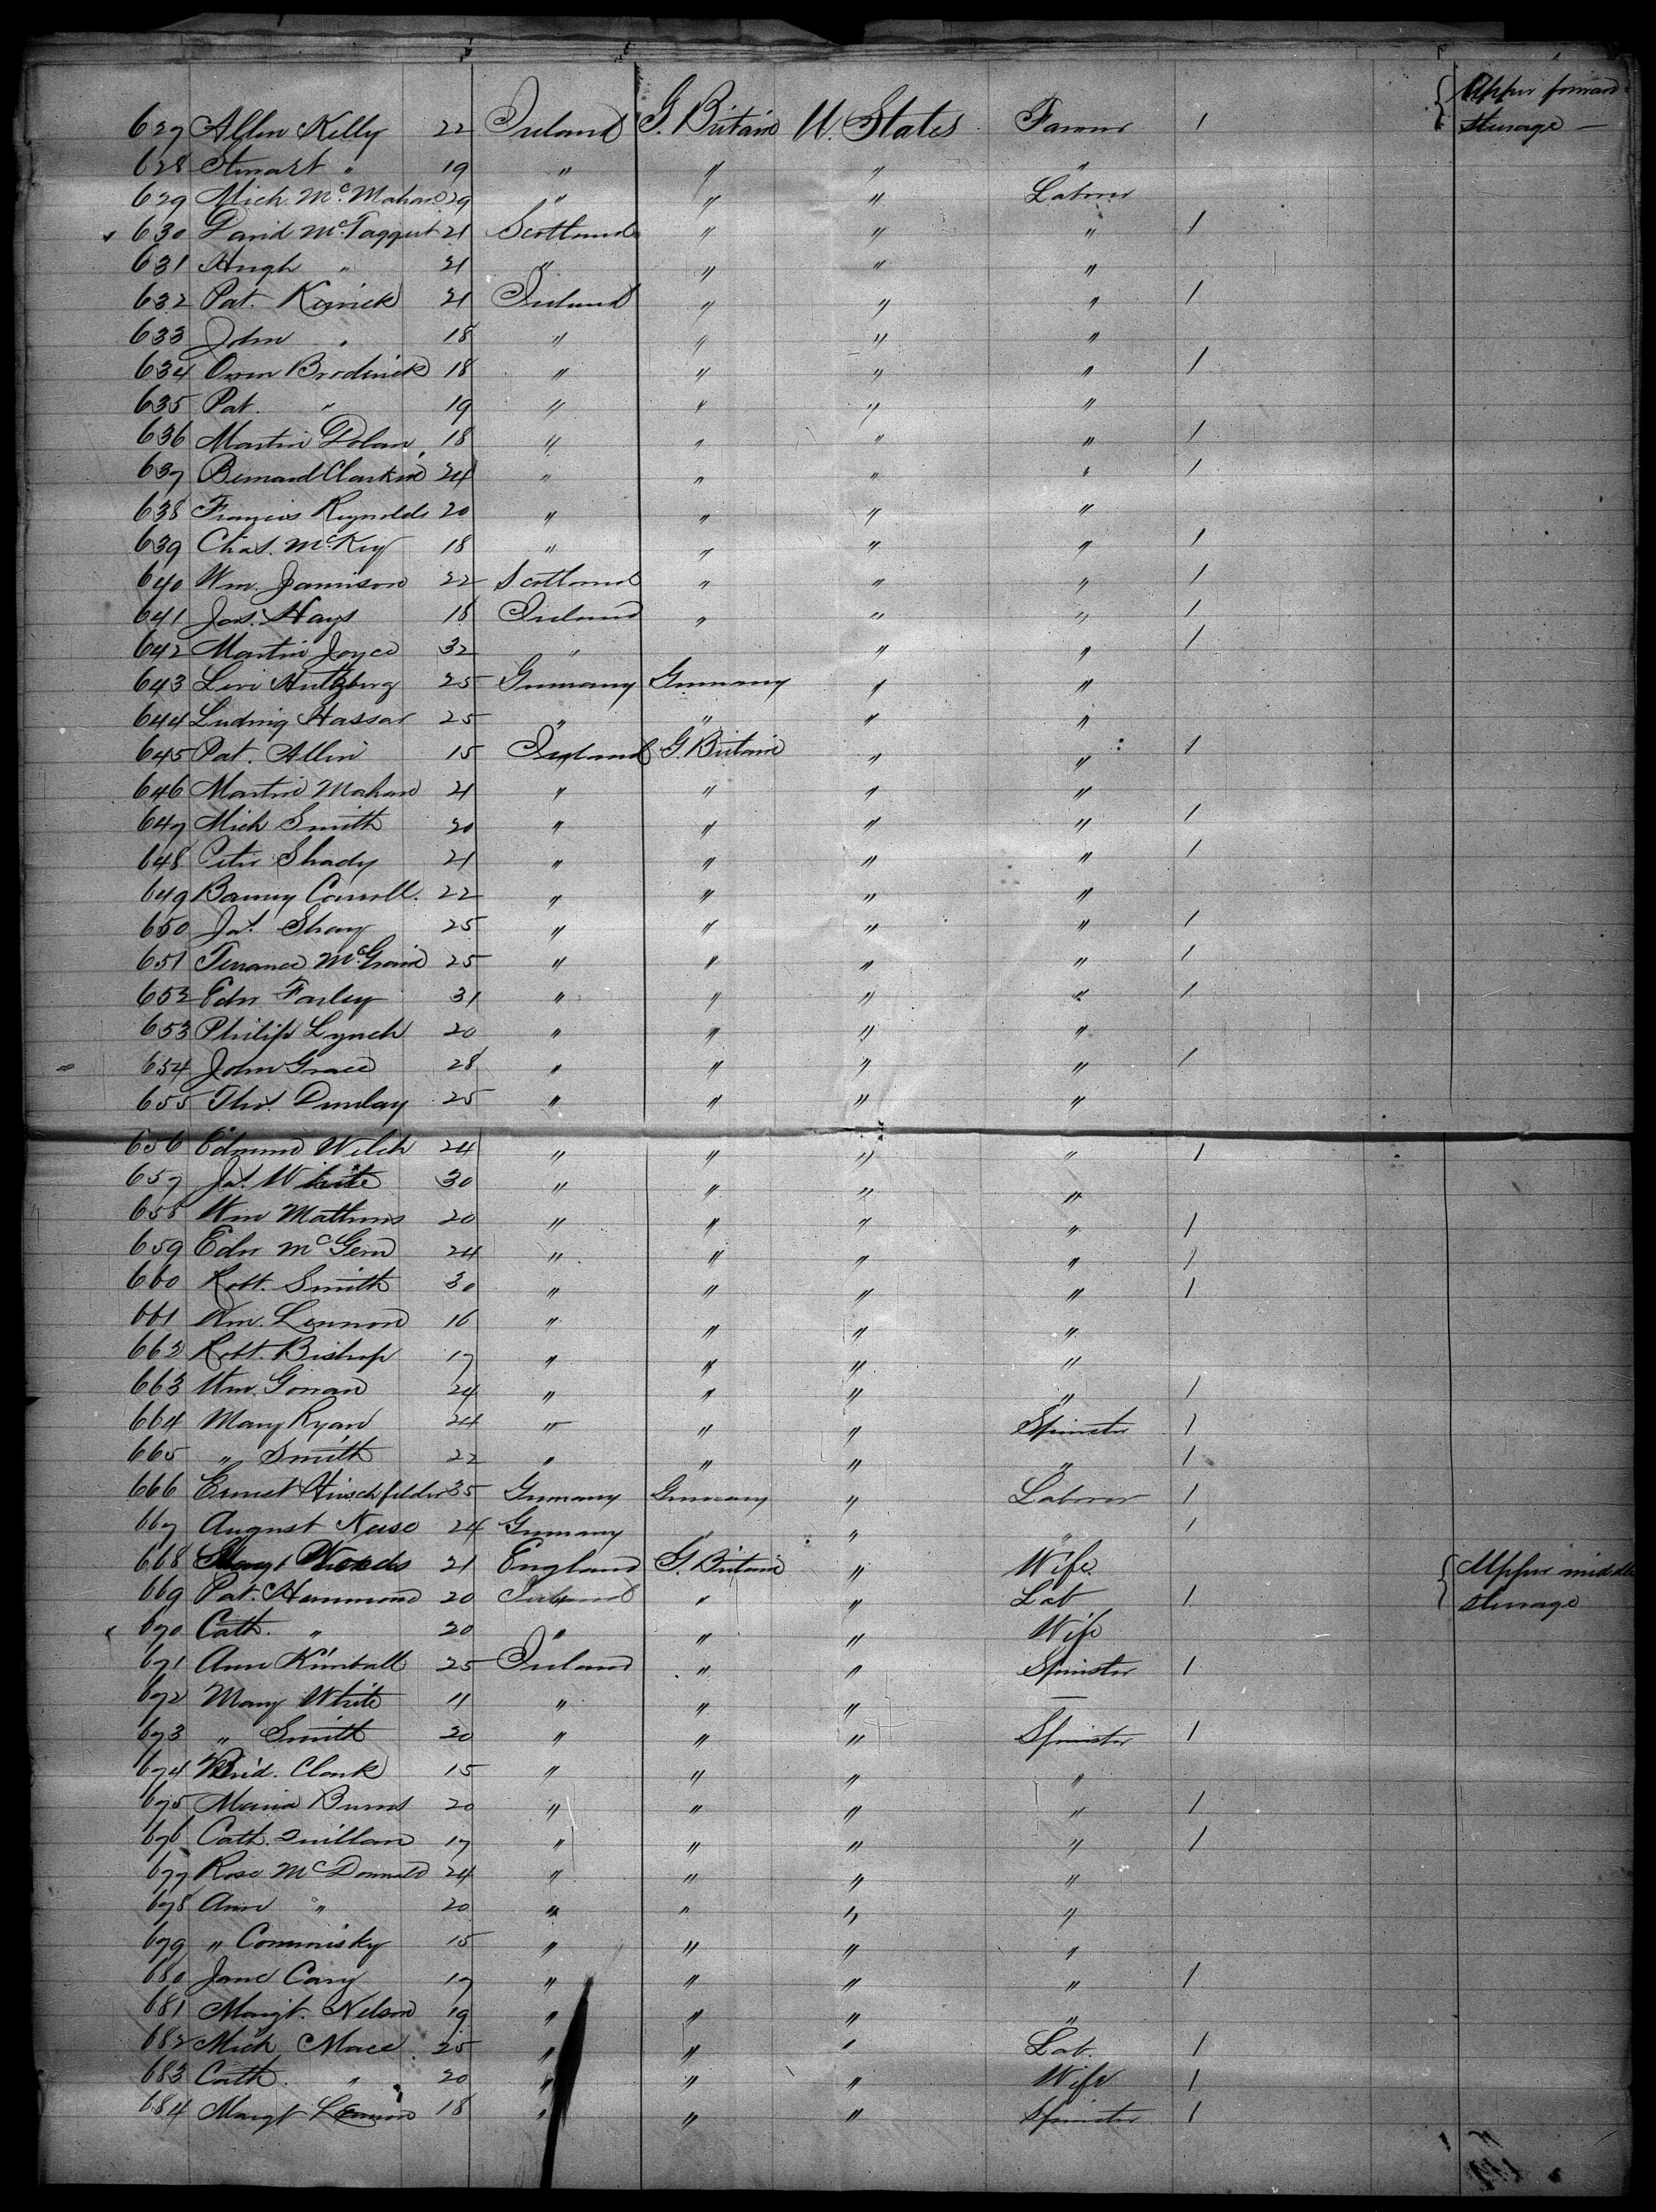 627 Allen Kelly 22 Ireland G. Britain U. States Farmer 1 { Upper forward
steerage —
628 Stuart " 19 " " " "
629 Mich. McMahan 29 " " " Laborer
630 David McTaggert 21 Scotland " " " 1
631 Hugh " 21 " " " "
632 Pat. Kerrick 21 Ireland " " " 1
633 John " 18 " " " "
634 Owen Broderick 18 " " " " 1
635 Pat. " 19 " " " "
636 Martin Dolan 18 " " " " 1
637 Bernard Clarkin 24 " " " " 1
638 Francis Reynolds 20 " " " "
639 Chas. McKey 18 " " " " 1
640 Wm. Jamison 22 Scotland " " " 1
641 Jas. Hays 18 Ireland " " " 1
642 Martin Joyce 32 " " " 1
643 Levi 25 Germany Germany " "
644 Ludwig Hassar 25 " " " "
645 Pat. Allen 15 Ireland G. Britain " " 1
646 Martin Mahan 21 " " " "
647 Mich Smith 20 " " " " 1
648 Peter Shady 21 " " " " 1
649 Barney Carroll. 22 " " " "
650 Jas. Shay 25 " " " " 1
651 Terrance McGrain 25 " " " " 1
652 Edw Farley 31 " " " " 1
653 Philip Lynch 20 " " " "
654 John Grace 28 " " " " 1
655 Thos. Dunlay 25 " " " "
656 Edmund Welch 24 " " " " 1
657 Jas. White 30 " " " "
658 Wm Mathews 20 " " " " 1
659 Edw McGern 24 " " " " 1
660 Robt. Smith 30 " " " " 1
661 Wm. Lennon 16 " " " "
662 Robt. Bishop 17 " " " "
663 Wm. Gorran 24 " " " " 1
664 Mary Ryan 24 " " " Spinster 1
665 " Smith 22 " " " " 1
666 Ernest Hirschfelder 35 Germany Germany " Laborer 1
667 August Neise 24 Germany " " " 1
668 Woods 21 England G. Britain " Wife { Upper middle
669 Pat. Hammond 20 Ireland " " Lab 1 steerage
670 Cath. " 20 " " " Wife
671 Ann Kimball 25 Ireland " " Spinster 1
672 Mary White 11 " " " —
673 " Smith 20 " " " Spinster 1
674 Brid. Clark 15 " " " "
675 Maria Burns 20 " " " " 1
676 Cath. Quillan 17 " " " " 1
677 Rose McDonnald 24 " " " "
678 Ann " 20 " " " "
679 " Commisky 15 " " " "
680 Jane Cary 17 " " " " 1
681 Margt. Nelson 19 " " " "
682 Mich Mace 25 " " " Lab. 1
683 Cath. " 20 " " " Wife 1
684 Margt Lennon 18 " " " Spinster 1